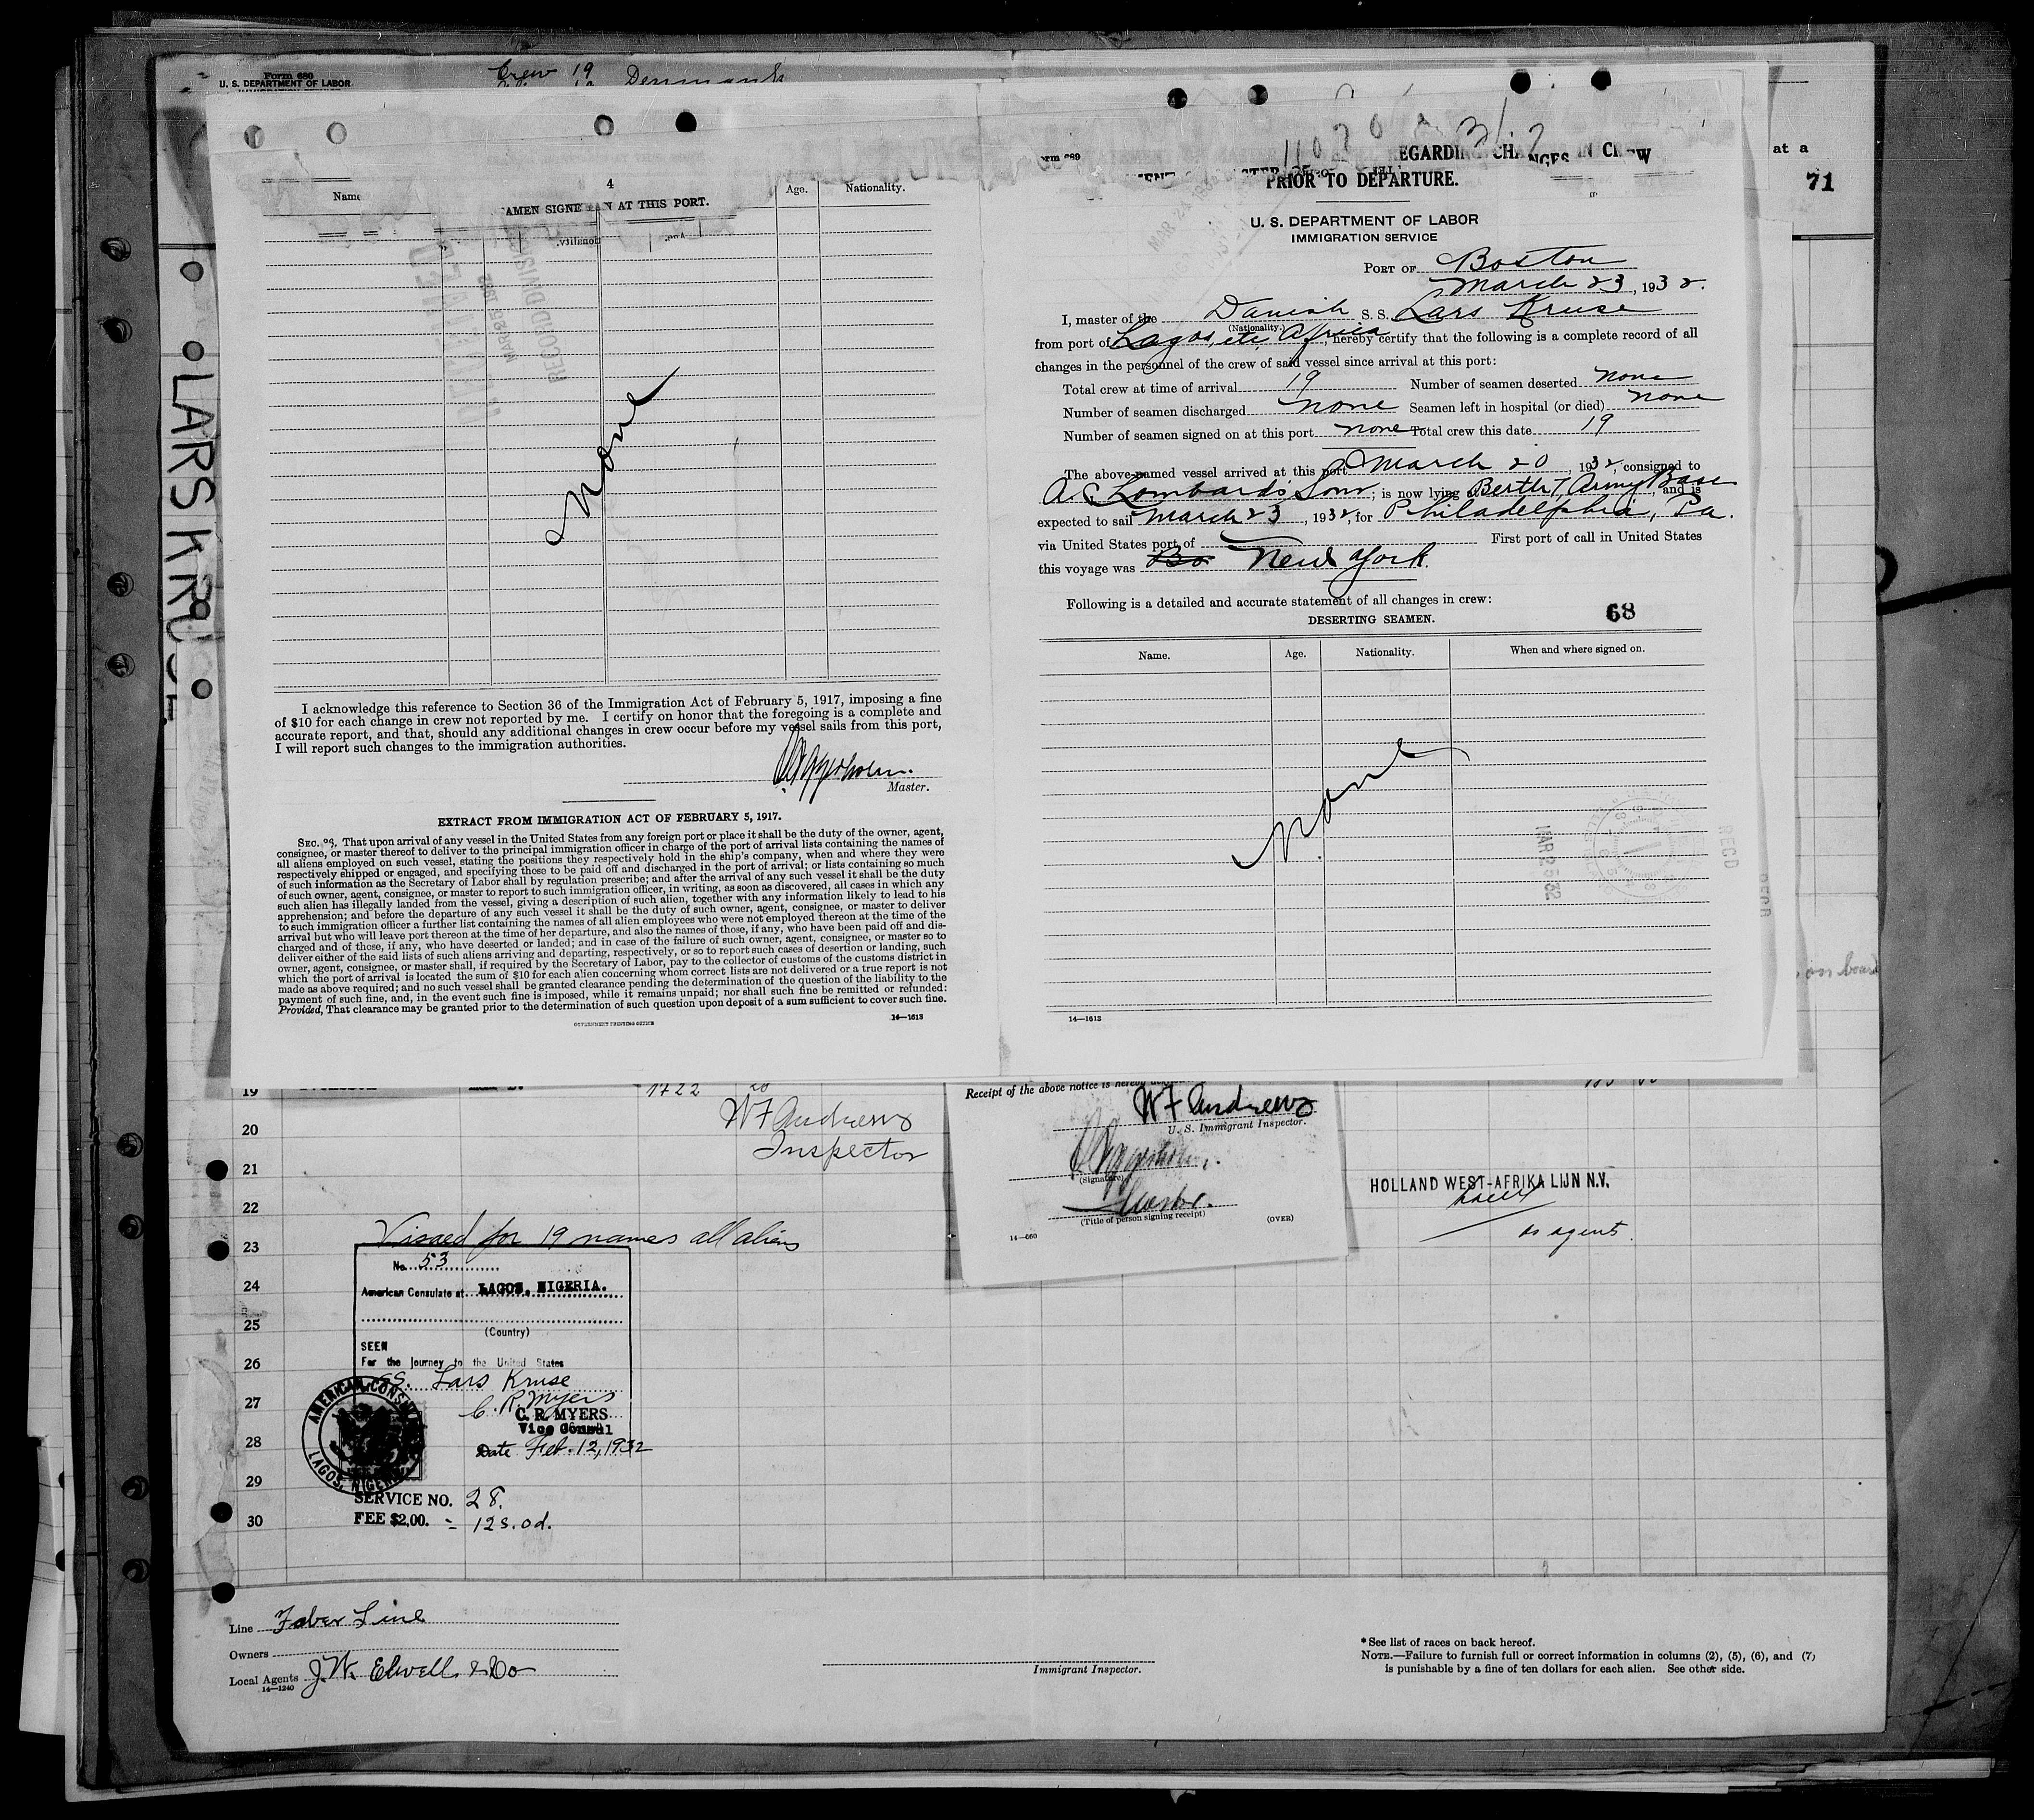 Form 680
U. S. DEPARTMENT OF LABOR
Crew 19 Denmark
at a
71
LARS KRUSE
4
SEAMEN SIGNED ON AT THIS PORT.
Name
Age.
Nationality.
RECORD DIVISION
MAR 25 1932
None
I acknowledge this reference to Section 36 of the Immigration Act of February 5, 1917, imposing a fine
of $10 for each change in crew not reported by me. I certify on honor that the foregoing is a complete and
accurate report, and that, should any additional changes in crew occur before my vessel sails from this port,
I will report such changes to the immigration authorities.
Master.
EXTRACT FROM IMMIGRATION ACT OF FEBRUARY 5, 1917.
SEC. 36. That upon arrival of any vessel in the United States from any foreign port or place it shall be the duty of the owner, agent,
consignee, or master thereof to deliver to the principal immigration officer in charge of the port of arrival lists containing the names of
all aliens employed on such vessel, stating the positions they respectively hold in the ship's company, when and where they were
respectively shipped or engaged, and specifying those to be paid off and discharged in the port of arrival; or lists containing so much
of such information as the Secretary of Labor shall by regulation prescribe; and after the arrival of any such vessel it shall be the duty
of such owner, agent, consignee, or master to report to such immigration officer, in writing, as soon as discovered, all cases in which any
such alien has illegally landed from the vessel, giving a description of such alien, together with any information likely to lead to his
apprehension; and before the departure of any such vessel it shall be the duty of such owner, agent, consignee, or master to deliver
to such immigration officer a further list containing the names of all alien employees who were not employed thereon at the time of the
arrival but who will leave port thereon at the time of her departure, and also the names of those, if any, who have been paid off and dis-
charged and of those, if any, who have deserted or landed; and in case of the failure of such owner, agent, consignee, or master so to
deliver either of the said lists of such aliens arriving and departing, respectively, or so to report such cases of desertion or landing, such
owner, agent, consignee, or master shall, if required by the Secretary of Labor, pay to the collector of customs of the customs district in
which the port of arrival is located the sum of $10 for each alien concerning whom correct lists are not delivered or a true report is not
made as above required; and no such vessel shall be granted clearance pending the determination of the question of the liability to the
payment of such fine, and, in the event such fine is imposed, while it remains unpaid; nor shall such fine be remitted or refunded:
Provided, That clearance may be granted prior to the determination of such question upon deposit of a sum sufficient to cover such fine.
GOVERNMENT PRINTING OFFICE
14—1613
Form 689
REGARDING CHANGES IN CREW
PRIOR TO DEPARTURE.
U. S. DEPARTMENT OF LABOR
IMMIGRATION SERVICE
PORT OF Boston
March 23, 1932.
I, master of the Danish S. S. Lars Kruse
(Nationality.)
from port of Lagos, etc, Africa, hereby certify that the following is a complete record of all
changes in the personnel of the crew of said vessel since arrival at this port:
Total crew at time of arrival 19 Number of seamen deserted none
Number of seamen discharged none Seamen left in hospital (or died) none
Number of seamen signed on at this port none Total crew this date 19
The above-named vessel arrived at this port March 20, 1932, consigned to
A. C. Lombards Sons; is now lying Berth 7, Army Base, and is
expected to sail March 23, 1932, for Philadelphia, Pa.
via United States port of First port of call in United States
this voyage was Bo New York.
Following is a detailed and accurate statement of all changes in crew:
68
DESERTING SEAMEN.
Name.
Age.
Nationality.
When and where signed on.
None
MAR 25 32
RECD
RECD
14—1613
on board
19
1722
20
W F Andrews
Inspector
20
21
22
23
24
25
26
27
28
29
30
Receipt of the above notice is hereby
W F Andrews
U. S. Immigrant Inspector.
(Signature)
Master.
(Title of person signing receipt)
(OVER)
14—660
HOLLAND WEST-AFRIKA LIJN N.V.
as agents.
Visaed for 19 names all aliens
No. 53
American Consulate at LAGOS, NIGERIA.
(Country)
SEEN
For the journey to the United States
SS. Lars Kruse
C. R. Myers
C. R. MYERS
Vice Consul
Date Feb. 12, 1932
AMERICAN CONSULATE
LAGOS, NIGERIA
SERVICE NO. 28.
FEE $2.00. = 12s. 0d.
Line Faber Line
Owners
Local Agents J. W. Elwell & Co
14—1240
Immigrant Inspector.
* See list of races on back hereof.
NOTE.—Failure to furnish full or correct information in columns (2), (5), (6), and (7)
is punishable by a fine of ten dollars for each alien. See other side.